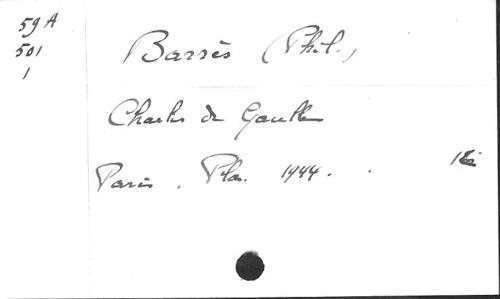 59 A
501
1
Barrès (Phil.)
Charles de Gaulle
Paris . Plon. 1944. .